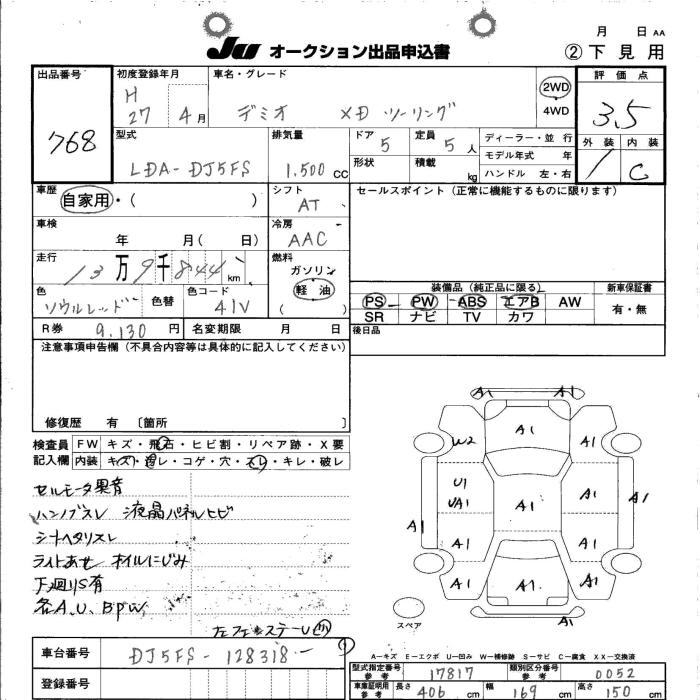 月 日 AA
JU オークション出品申込書 ②下見用
出品番号 768
初度登録年月 H 27 4月
車名・グレード デミオ XD ツーリング
2WD
4WD
評価点 3.5
外装 1 内装 C
型式 LDA-DJ5FS
排気量 1.500 CC
ドア 5 定員 5人
形状 積載 kg
ディーラー・並行
モデル年式 年
ハンドル 左・右
車歴 自家用・( )
シフト AT
セールスポイント(正常に機能するものに限ります)
車検 年 月( 日)
冷房 AAC
走行 13万9千844km
燃料 ガソリン 軽油 ( )
色 ソウルレッド 色替 色コード 41V
装備品(純正品に限る) 新車保証書
PS PW ABS エアB AW 有・無
SR ナビ TV カワ
R券 9.130円 名変期限 月 日
後日品
注意事項申告欄(不具合内容等は具体的に記入してください)
修復歴 有 〔箇所 〕
検査員 FW キズ・飛石・ヒビ割・リペア跡・X要
記入欄 内装 キズ・汚レ・コゲ・穴・スレ・キレ・破レ
セルモータ異音
ハンドルスレ 液晶パネルヒビ
シートヘタリスレ
ライトあせ オイルにじみ
下廻りS有
各A.U.BPW
A1 A1
W2 A1 A1
U1
UA1 A1 A1
A1 A1
A1 A1
A1 A1 A1
A1
スペア
A-キズ E-エクボ U-凹み W-補修跡 S-サビ C-腐食 XX-交換済
車台番号 DJ5FS-128318
登録番号
型式指定番号 参考 17817 類別区分番号 参考 0052
車庫証明用 参考 長さ 406cm 幅 169cm 高さ 150cm